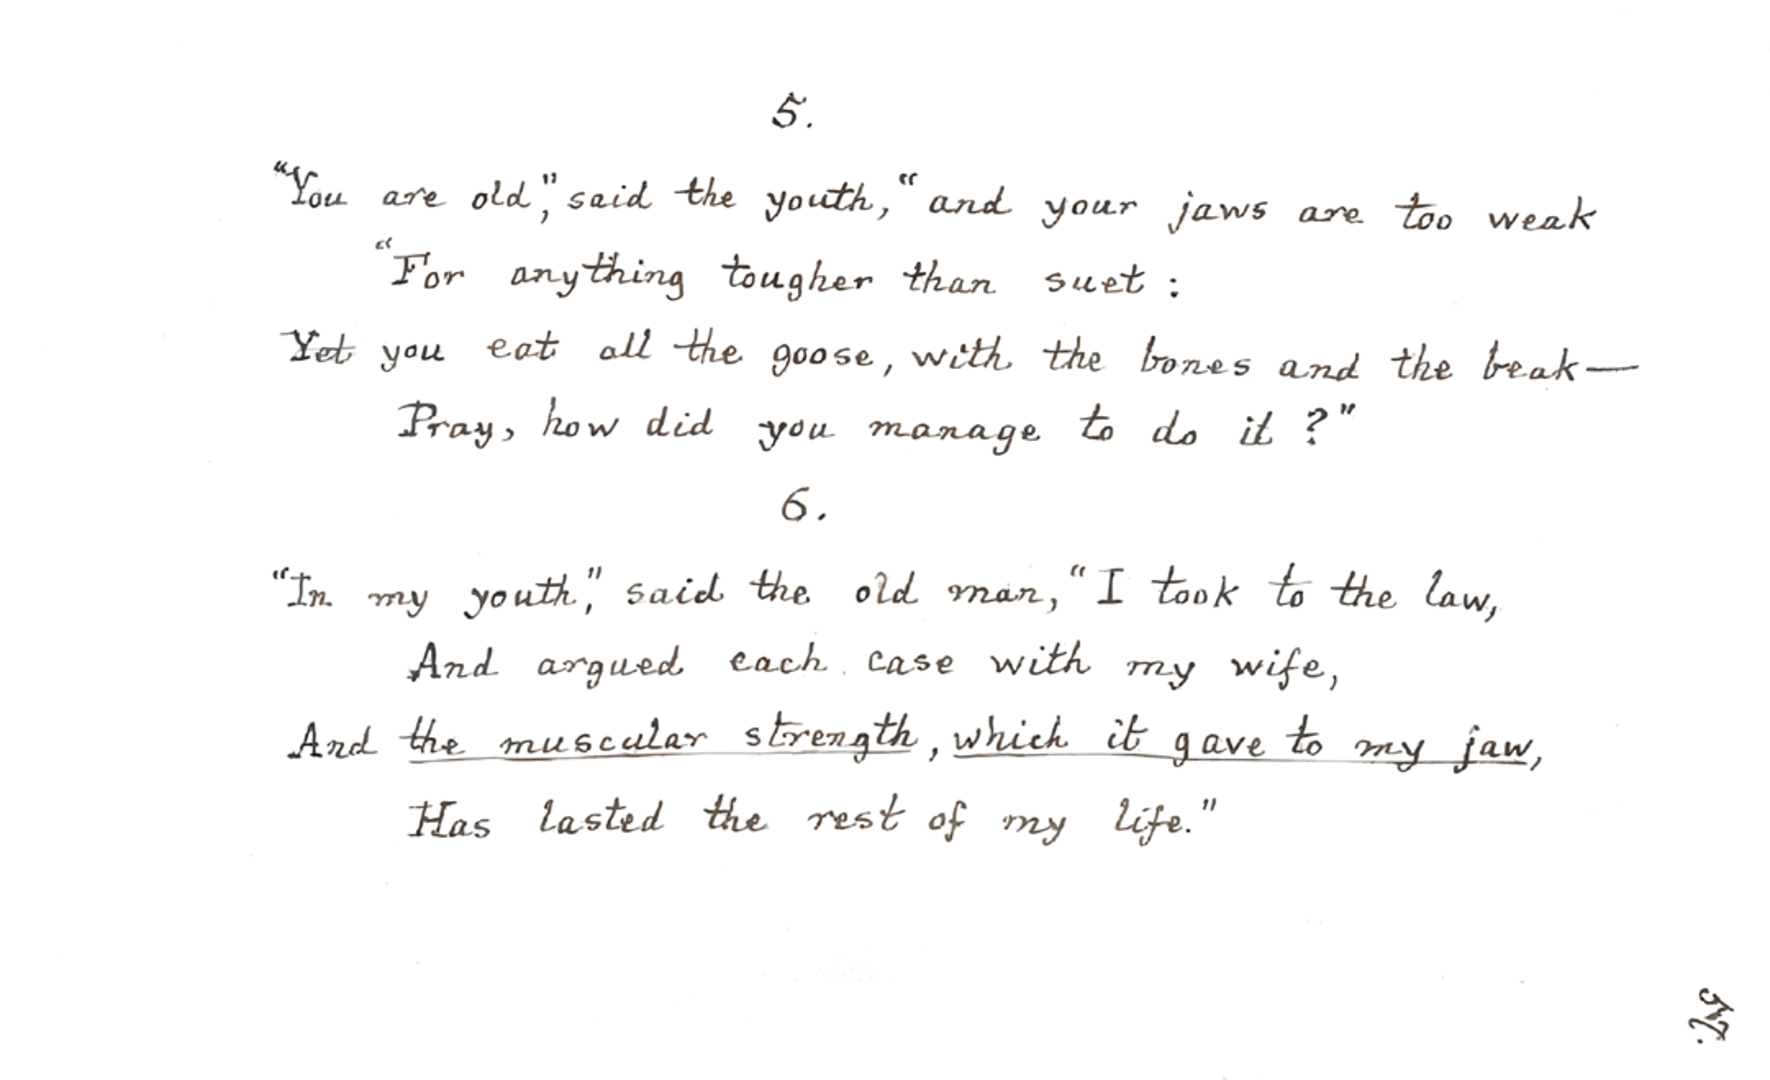 5.
"You are old," said the youth, "and your jaws are too weak
"For anything tougher than suet :
Yet you eat all the goose, with the bones and the beak—
Pray, how did you manage to do it ?"
6.
"In my youth," said the old man, "I took to the law,
And argued each case with my wife,
And the muscular strength, which it gave to my jaw,
Has lasted the rest of my life."